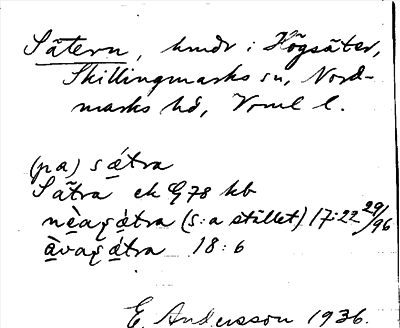 Sätern, hmdr i Högsäter,
Skillingmarks sn, Nord-
marks hd, Verml l.
(pa) sǽtra
Sätra ek G78 kb
nèa sǽtra (s:a stället) 17:22 29/96
àva sǽtra 18:6
E. Andersson 1936.